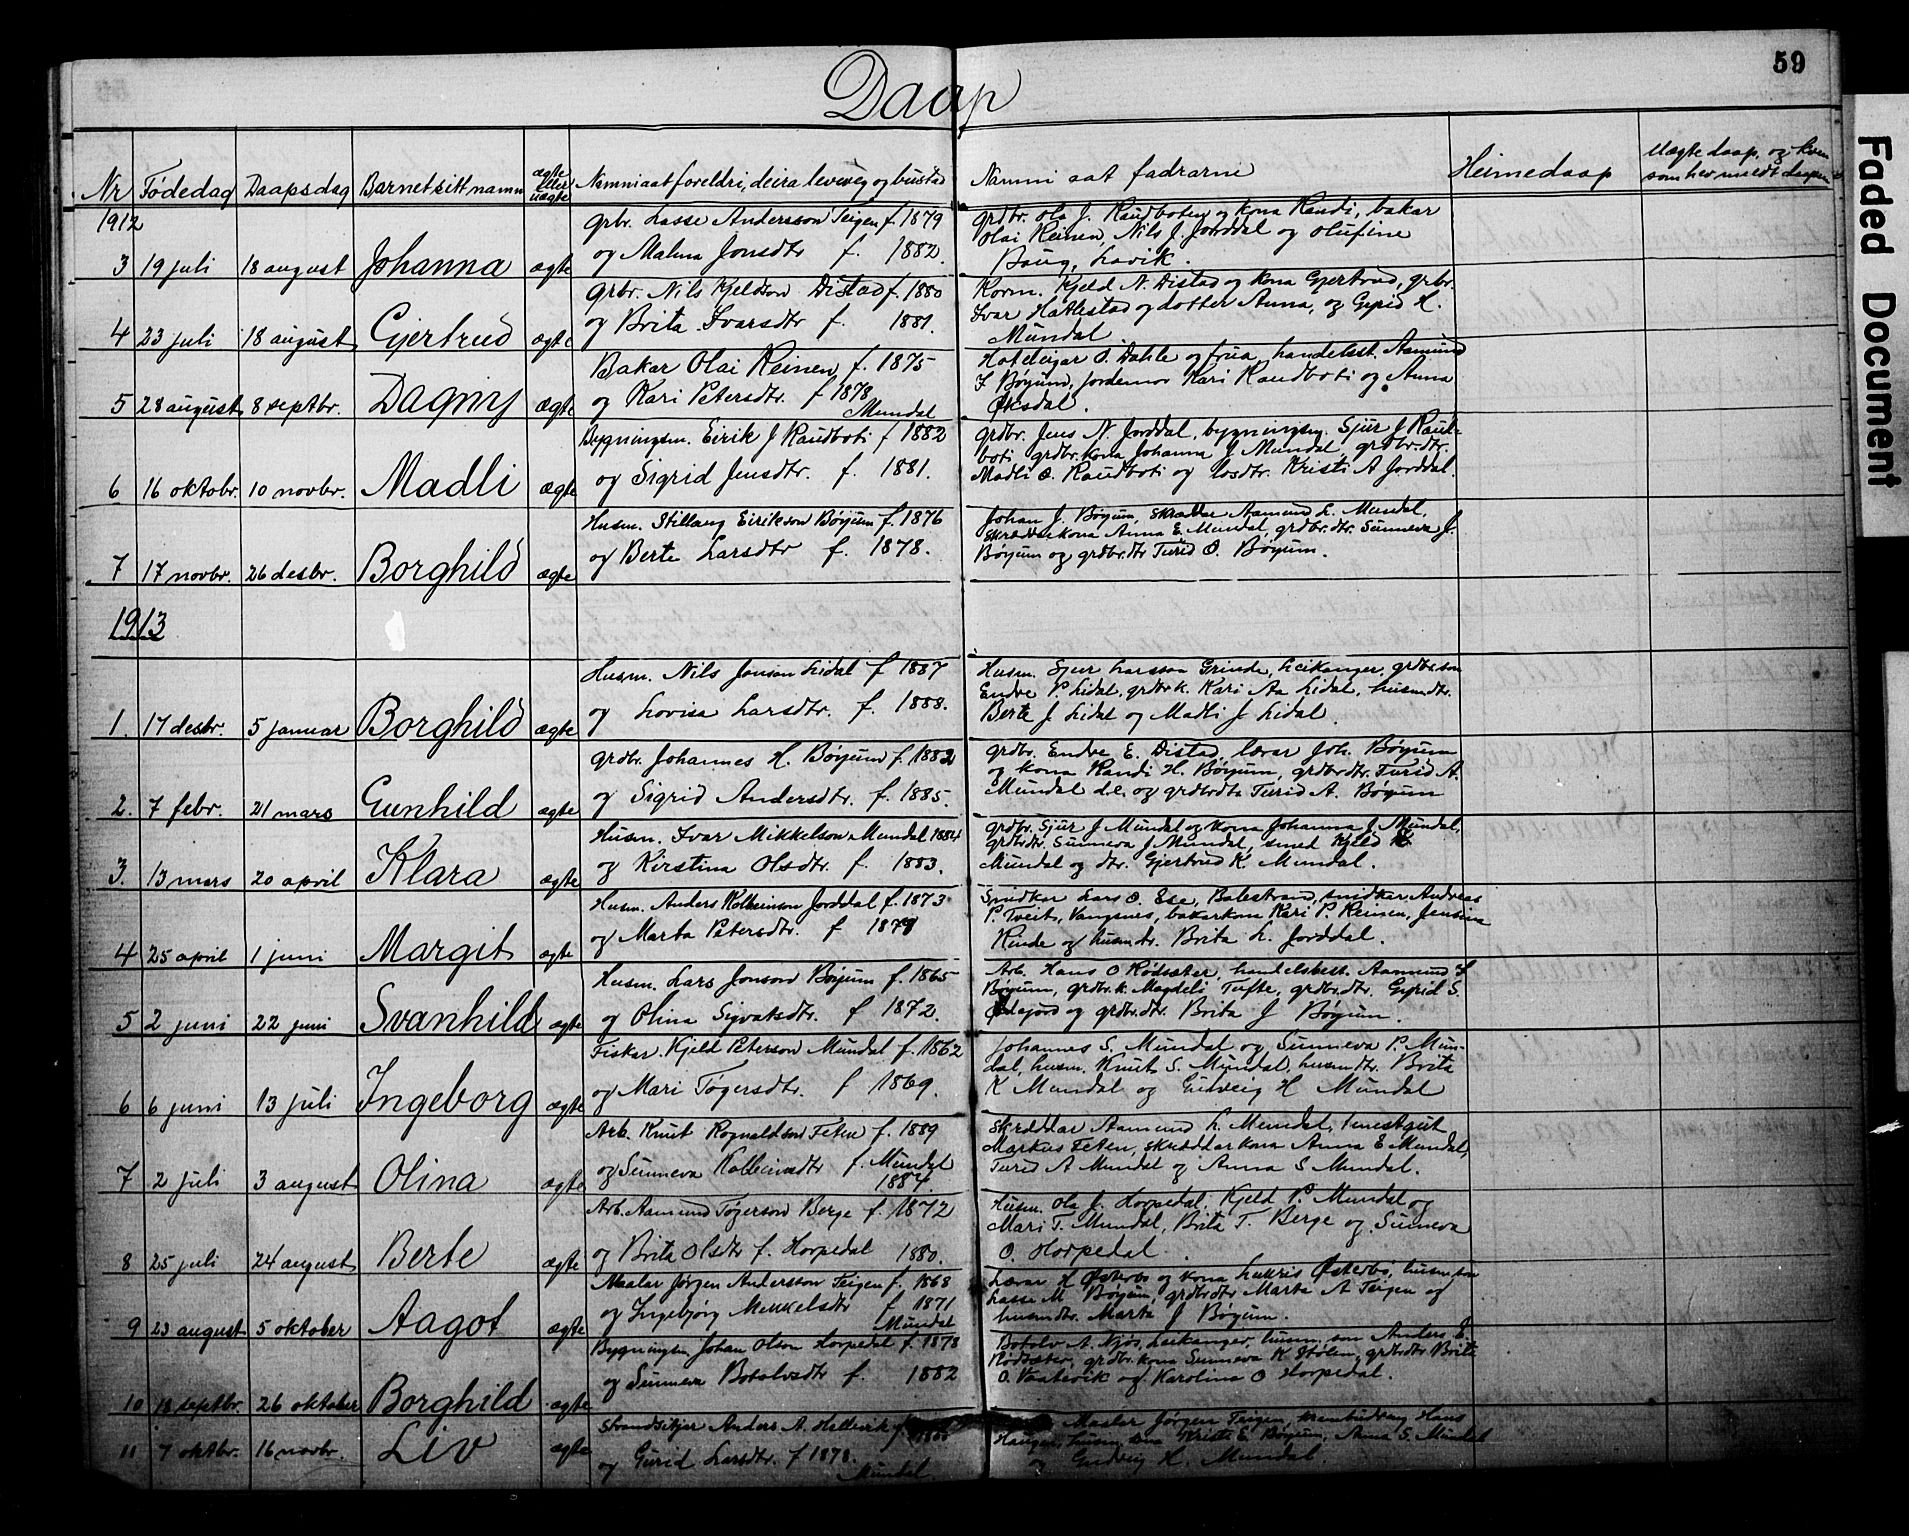 59
Daap
Nr Fødedag Daapsdag Barnet sitt namn ægte eller uægte Namni aat foreldri, deira leveveg og bustad Namni aat fadrarne Heimedaap Uægte daap, og kven som hev meldt daapen
1912
3 19 juli 18 august Johanna ægte
grbr. Lasse Andersson Teigen f. 1879
og Malma Jonsdtr f. 1882.
grdbr. Ola J. Raudboten og kona Randi, bakar
Olai Reinen, Nils J. Jorddal og Olufine
Baug, Lavik.
4 23 juli 18 august Gjertrud ægte
grbr. Nils Kjeldson Distad f. 1880
og Brita Ivarsdtr f. 1881.
Korm. Kjeld N. Distad og kona Gjertrud, grbr.
Ivar Hatlestad og dotter Anna, og Gyrid H.
Mundal
5 28 august 8 septbr. Dagny ægte
Bakar Olai Reinen f. 1875
og Kari Petersdtr. f 1878
Mundal
Hoteleigar O. Dahle og frua, handelsst. Aamund
I Bøyum, jordemor Kari Raudboti og Anna
Øksdal.
6 16 oktobr. 10 novbr. Madli ægte
Bygningsm. Eirik J Raudboti f 1882
og Sigrid Jensdtr. f. 1881.
grdbr. Jens N. Jorddal, bygningsm. Sjur J Raud-
boti grdbr.kona Johanna J Mundal, grdbr.dtr.
Madli O. Raudboti og losdtr. Kristi A Jorddal.
7 17 novbr. 26 desbr. Borghild ægte
Husm. Stillaug Eirikson Bøyum f. 1876
og Berte Larsdtr f. 1878.
Johan J. Bøyum, skræddar Aamund L. Mundal,
skrædderkona Anna E. Mundal, grdbr.dtr. Sunneva J.
Bøyum og grdbr.dtr Turid O. Bøyum.
1913
1. 17 desbr. 5 januar Borghild ægte
Husm. Nils Jonson Lidal f 1887
og Lovisa Larsdtr. f. 1888.
Husm. Sjur Larsson Grinde, Leikanger, grdbr.son
Endre P. Lidal, grdbr.k. Kari Aa Lidal, husm.dtr.
Berte J. Lidal og Madli J. Lidal.
2. 7 febr. 21 mars Gunhild ægte
grdbr. Johannes H. Bøyum f. 1882
og Sigrid Andersdtr. f. 1885.
grdbr. Endre E. Distad, lærar Joh. Bøyum
og kona Randi H. Bøyum, grdbr.dtr. Turid A.
Mundal d.e. og grdbr.dtr Turid A. Bøyum
3. 13 mars 20 april Klara ægte
Husm. Ivar Mikkelson Mundal 1884
og Kirstina Olsdtr. f. 1883.
grdbr. Sjur J Mundal og kona Johanna J. Mundal,
grdbr.dtr. Sunneva J Mundal, smed Kjeld K
Mundal og dtr. Gjertrud K Mundal.
4 25 april 1 juni Margit ægte
Husm. Anders Kolbeinson Jorddal f. 1873
og Marta Petersdtr. f
Snidkar Lars O. Ese, Balestrand, snidkar Andreas
P. Tveit, Vangsnes, bakarkona Kari P. Reinen, Jensina
Rinde og husm.dtr. Brita L. Jorddal.
5 2 juni 22 juni Svanhild ægte
Husm. Lars Jonson Bøyum f. 1865
og Olina Sigvatsdtr. f 1872.
Arb. Hans O Rødseter, handelsbest. Aamund I
Bøyum, grdbr.k. Magdeli Tufte, grdbr.dtr. Gyrid S.
og grdbr.dtr. Brita J Bøyum.
6 6 juni 13 juli Ingeborg ægte
Fiskar. Kjeld Peterson Mundal f. 1862
og Mari Tøgersdtr. f 1869.
Johannes S. Mundal og Sunneva P. Mun-
dal, husm. Knut S. Mundal, husm.dtr. Brita
K Mundal og Gudveig H Mundal
7 2 juli 3 august Olina ægte
Arb. Knut Rognaldson Feten f. 1889
og Sunneva Kolbeinsdtr f. Mundal
1884.
Skræddar Aamund L. Mundal, tenestgut
Markus Feten, skræddarkona Anna E Mundal,
Turid A Mundal og Anna S Mundal.
8 25 juli 24 august Berte ægte
Arb. Aamund Tøgerson Berge f. 1872
og Brita Olsdtr f. Horpedal 1880.
Husm. Ola L. Horpedal, Kjeld P. Mundal og
Mari T. Mundal, Brita T. Berge og Sunneva
O. Horpedal.
9 23 august 5 oktober Aagot ægte
Maalar Jørgen Andersson Teigen f. 1868
og Ingebjørg Menkelsdtr f 1871
Mundal
Lærar H Østerbø og kona Lukris Østerbø, husm.son
Lasse M. Bøyum, grdbr.dtr Marta A Teigen og
husm.dtr. Marta J Bøyum.
10 18 septbr. 26 oktober Borghild ægte
Bygningsm. Johan Olson Horpedal f. 1878
og Sunneva Botolvsdtr f. 1882
Botolv A. Njøs, Leikanger, husm.son Anders E.
Rødseter, grdbr.kona Sunneva K Stølen, grdbr.dtr Brite
O. Vaatevik og Karolina O Horpedal.
11 7 oktbr. 16 novbr. Liv ægte
Strandsitjar Anders A. Hellevik f.
og Gurid Larsdtr. f 1878.
Mundal
Maalar Jørgen Teigen, Hans
Haugen, husm. Kristi E Bøyum, Anna S. Mundal
og Gudveig H. Mundal.
Faded Document